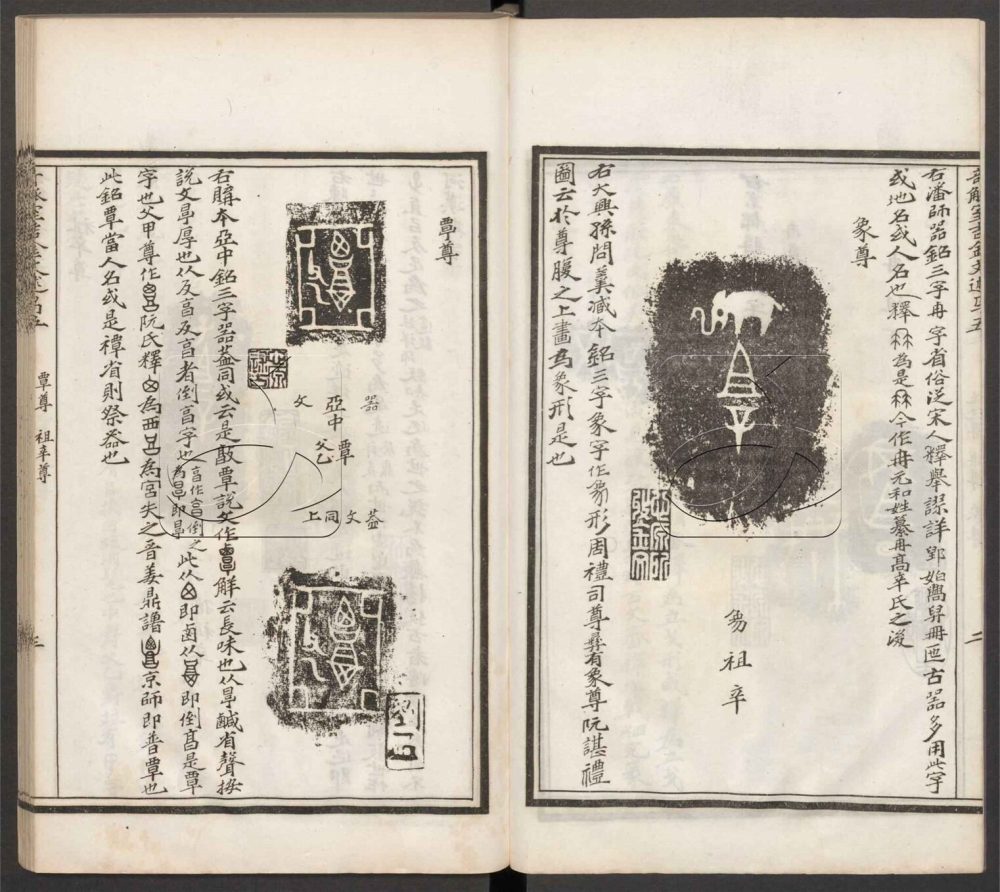 右潘師器銘三字冉字省俗从宋人釋舉謬詳鄂始鬲舁冊匜古器多用此字
或地名或人名也釋 為是 今作冉元和姓纂冉高辛氏之後
象尊
象祖辛
右大興孫問羹減本銘三字象字作象形周禮司尊彝有象尊阮諶禮
圖云於尊腹之上畫為象形是也
覃尊
器
亞中覃
父乙
文
蓋文同上
右賸本亞中銘三字器蓋同或云是敢覃說文作 解云長味也从㫗鹹省聲按
說文㫗厚也从反亯反亯者倒亯字也 此从 即鹵从 即倒亯是覃
字也父甲尊作 阮氏釋 為西 為宮失之晉姜鼎譜 京師即普覃也
此銘覃當人名或是禫省則祭器也
覃尊 祖辛尊
三
二